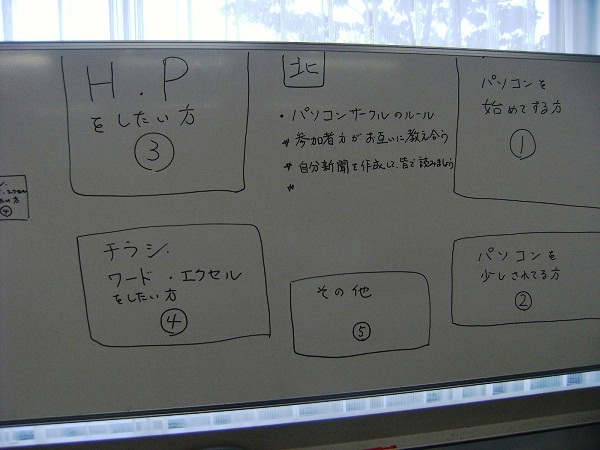 H.P
をしたい方
③
北
・パソコンサークルのルール
* 参加者方がお互いに教え合う
* 自分新聞を作成して、皆で読みましょう
*
パソコンを
始めてする方
①
チラシ.
ワード・エクセル
をしたい方
④
その他
⑤
パソコンを
少しされてる方
②
④